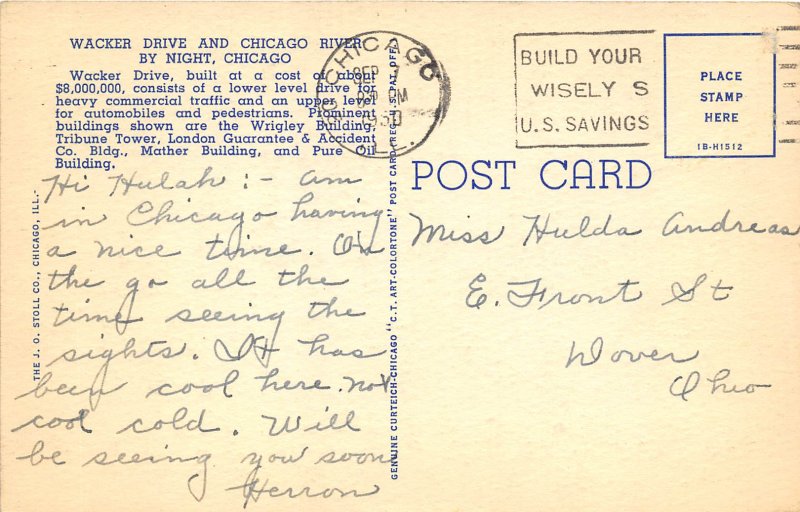 WACKER DRIVE AND CHICAGO RIVER
BY NIGHT, CHICAGO
Wacker Drive, built at a cost of about
$8,000,000, consists of a lower level drive for
heavy commercial traffic and an upper level
for automobiles and pedestrians. Prominent
buildings shown are the Wrigley Building,
Tribune Tower, London Guarantee & Accident
Co. Bldg., Mather Building, and Pure Oil
Building.
Hi Hulah :- Am
in Chicago having
a nice time. On
the go all the
time seeing the
sights. It has
been cool here. not
cool cold. Will
be seeing you soon
Herron
THE J. O. STOLL CO., CHICAGO, ILL.
GENUINE CURTEICH-CHICAGO "C.T. ART-COLORTONE" POST CARD (REG. U.S. PAT. OFF.)
CHICAGO
SEP
PM
1950
ILL.
BUILD YOUR
WISELY S
U.S. SAVINGS
PLACE
STAMP
HERE
1B-H1512
POST CARD
Miss Hulda Andreas
E. Front St
Dover
Ohio